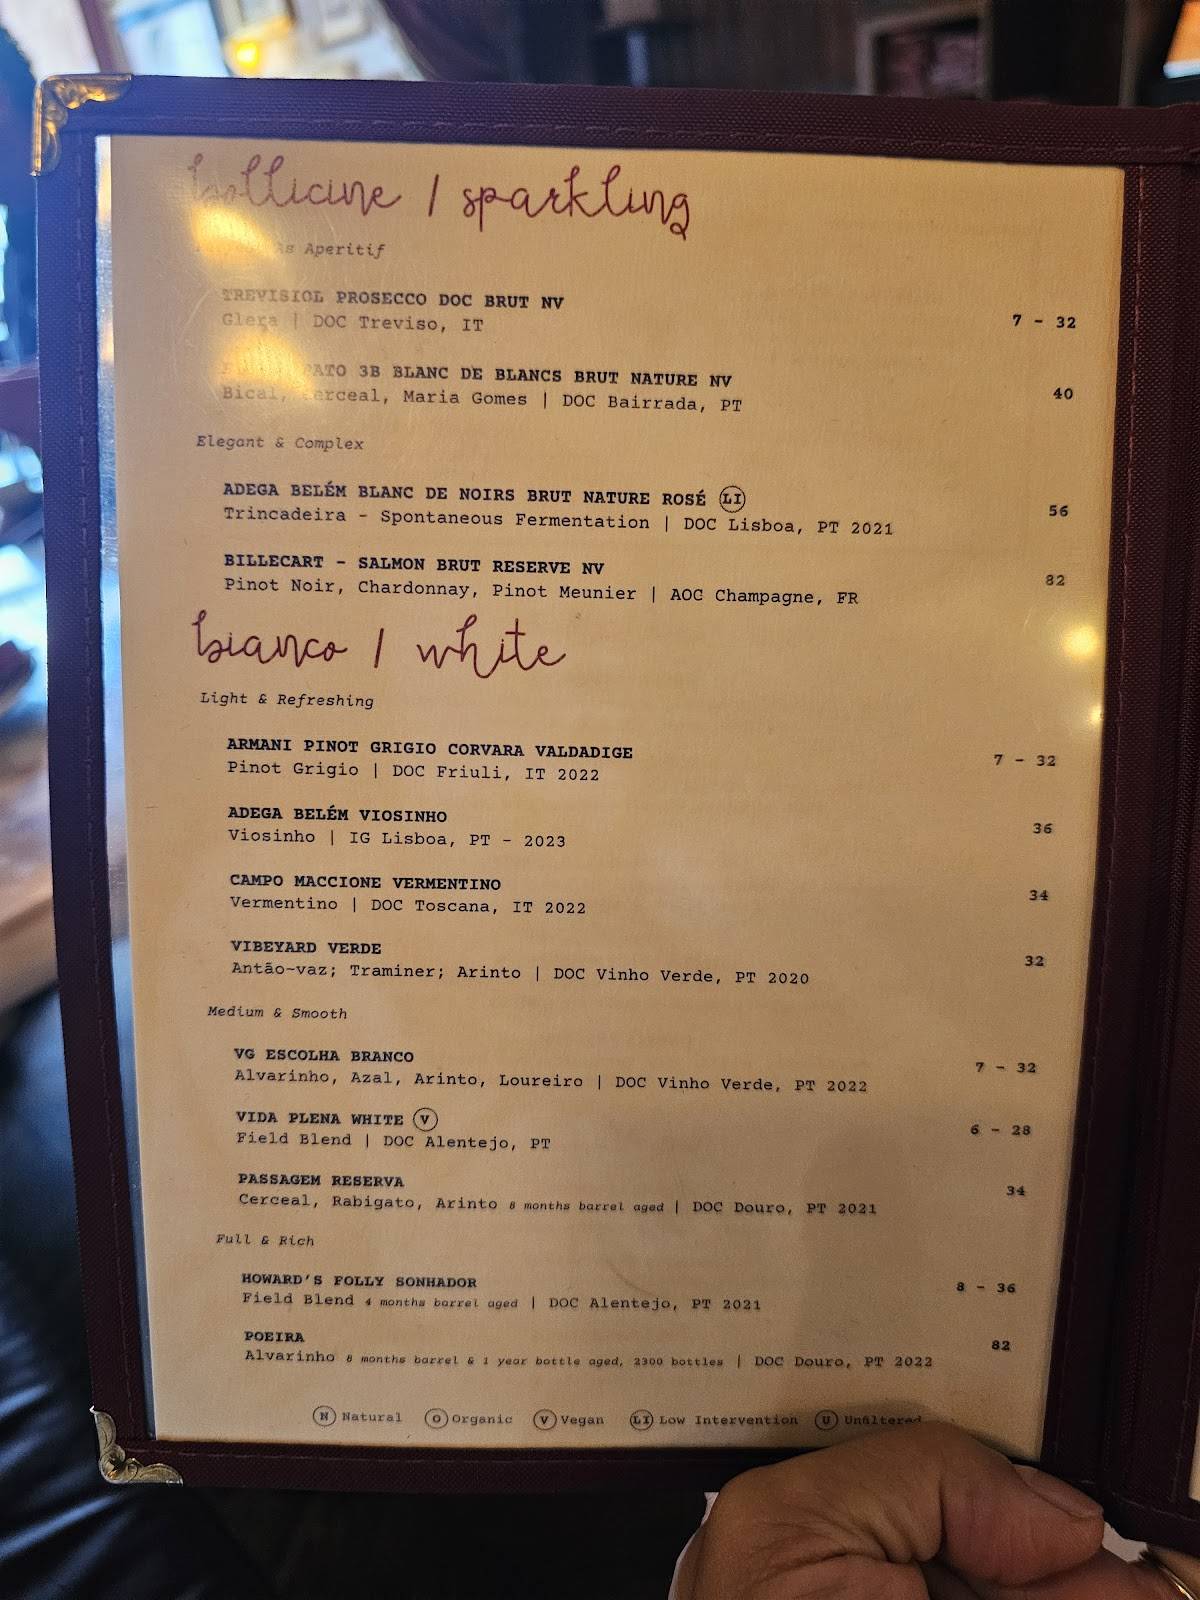 bollicine / sparkling
As Aperitif
TREVISIOL PROSECCO DOC BRUT NV
Glera | DOC Treviso, IT
7 - 32
PATO 3B BLANC DE BLANCS BRUT NATURE NV
Bical, Cerceal, Maria Gomes | DOC Bairrada, PT
40
Elegant & Complex
ADEGA BELÉM BLANC DE NOIRS BRUT NATURE ROSÉ LI
Trincadeira - Spontaneous Fermentation | DOC Lisboa, PT 2021
56
BILLECART - SALMON BRUT RESERVE NV
Pinot Noir, Chardonnay, Pinot Meunier | AOC Champagne, FR
82
bianco / white
Light & Refreshing
ARMANI PINOT GRIGIO CORVARA VALDADIGE
Pinot Grigio | DOC Friuli, IT 2022
7 - 32
ADEGA BELÉM VIOSINHO
Viosinho | IG Lisboa, PT - 2023
36
CAMPO MACCIONE VERMENTINO
Vermentino | DOC Toscana, IT 2022
34
VIBEYARD VERDE
Antão-vaz; Traminer; Arinto | DOC Vinho Verde, PT 2020
32
Medium & Smooth
VG ESCOLHA BRANCO
Alvarinho, Azal, Arinto, Loureiro | DOC Vinho Verde, PT 2022
7 - 32
VIDA PLENA WHITE V
Field Blend | DOC Alentejo, PT
6 - 28
PASSAGEM RESERVA
Cerceal, Rabigato, Arinto 8 months barrel aged | DOC Douro, PT 2021
34
Full & Rich
HOWARD'S FOLLY SONHADOR
Field Blend 4 months barrel aged | DOC Alentejo, PT 2021
8 - 36
POEIRA
Alvarinho 8 months barrel & 1 year bottle aged, 2300 bottles | DOC Douro, PT 2022
82
N Natural O Organic V Vegan LI Low Intervention U Unfiltered